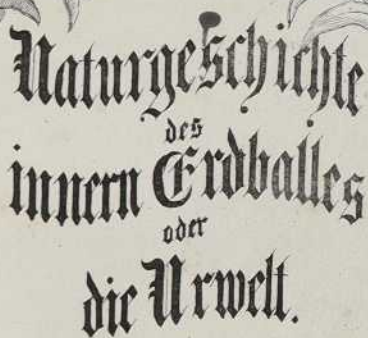 Naturgeschichte
des
innern Erdballes
oder
die Urwelt.